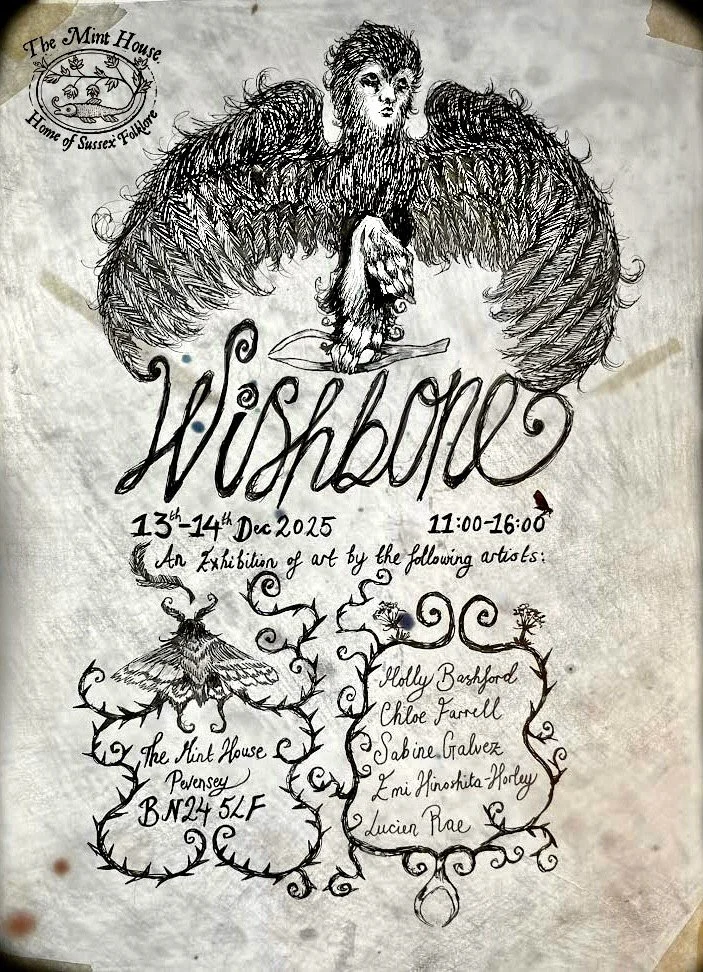 The Mint House
Home of Sussex Folklore
Wishbone
13th-14th Dec 2025
11:00-16:00
An Exhibition of art by the following artists:
The Mint House
Pevensey
BN24 5LF
Molly Bashford
Chloe Farrell
Sabine Galvez
Emi Hinoshita-Horley
Lucien Rae